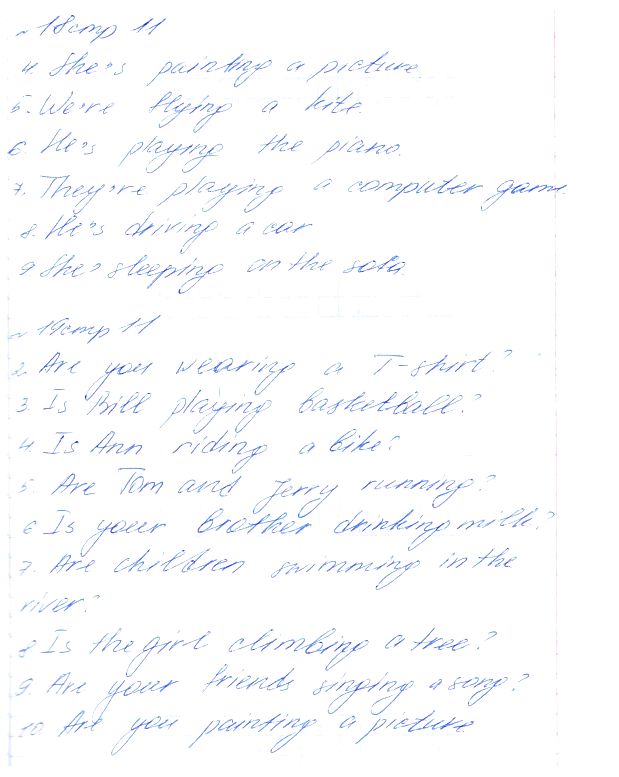 ~ 18 стр 11
4. She's painting a picture.
5. We're flying a kite.
6. He's playing the piano.
7. They're playing a computer game.
8. He's driving a car
9 She's sleeping on the sofa.
~ 19 стр 11
2. Are you wearing a T-shirt?
3. Is Bill playing basketball?
4. Is Ann riding a bike?
5. Are Tom and Jerry running?
6 Is your brother drinking milk?
7. Are children swimming in the
river?
8 Is the girl climbing a tree?
9. Are your friends singing a song?
10 Are you painting a picture